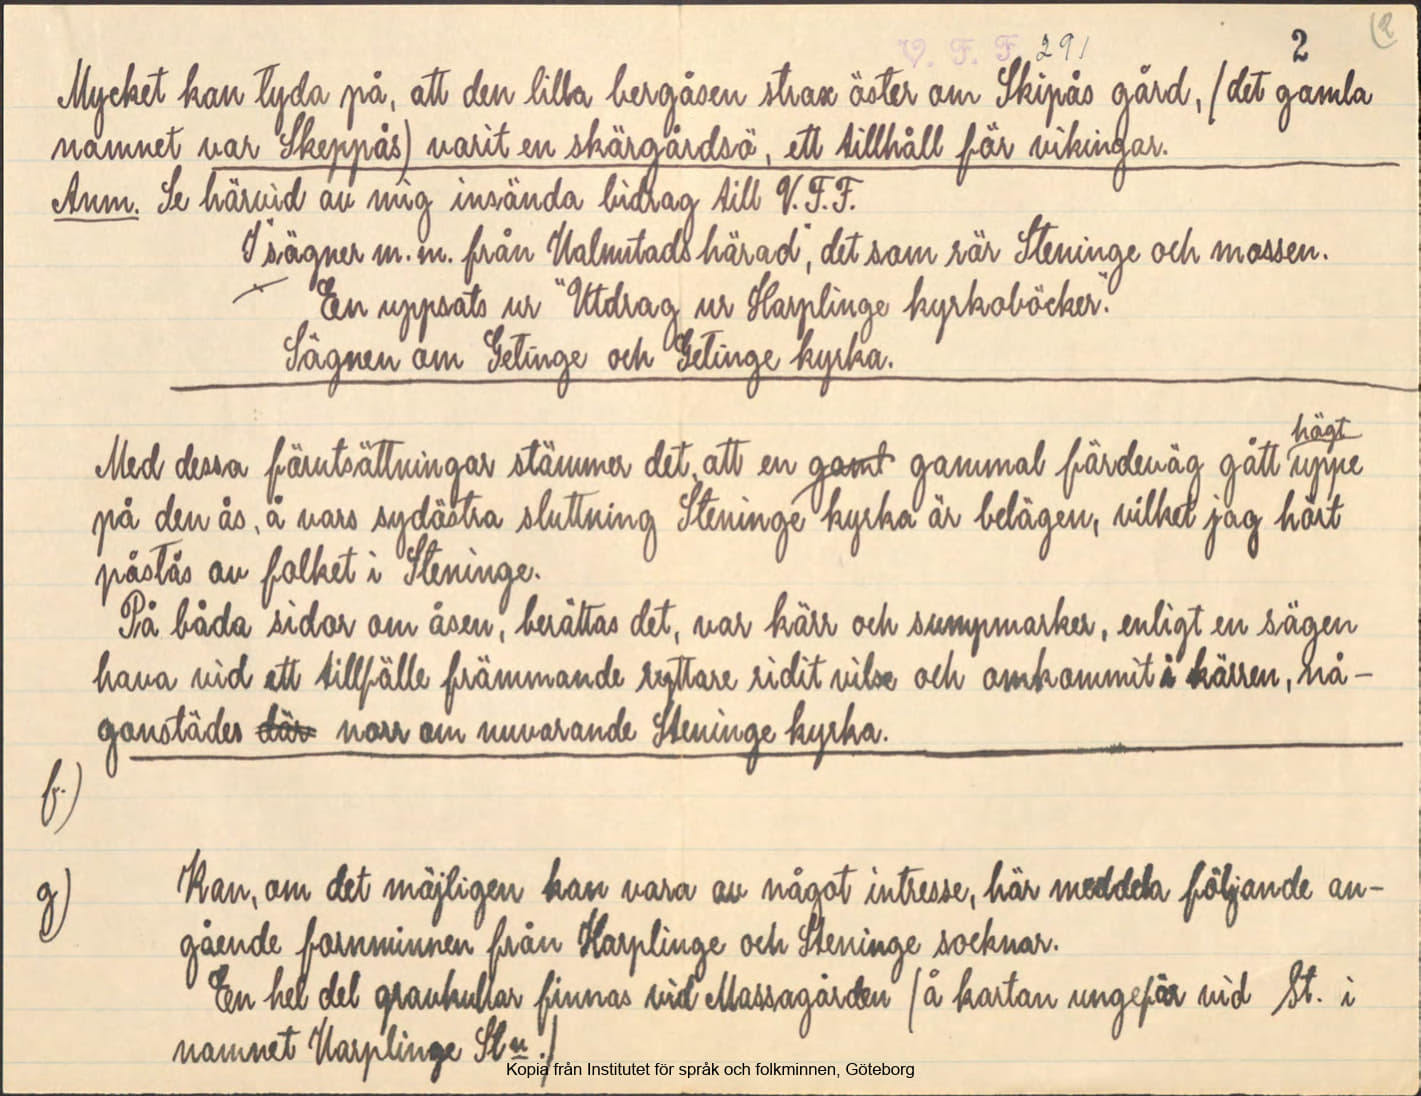 V. F. F. 291
2
2
Mycket kan tyda på, att den lilla bergåsen strax öster om Skipås gård, (det gamla
namnet var Skeppås) varit en skärgårdsö, ett tillhåll för vikingar.
Anm. Se härvid av mig insända bidrag till V.F.F.
I "sägner m.m. från Halmstads härad", det som rör Steninge och mossen.
En uppsats ur "Utdrag ur Harplinge kyrkoböcker".
Sägnen om Getinge och Getinge kyrka.
högt
Med dessa förutsättningar stämmer det, att en gaml gammal färdeväg gått uppe
på den ås, å vars sydöstra sluttning Steninge kyrka är belägen, vilket jag hört
påstås av folket i Steninge.
På båda sidor om åsen, berättas det, var kärr och sumpmarker, enligt en sägen
hava vid ett tillfälle främmande ryttare ridit vilse och omkommit i kärren, nå-
gonstädes där norr om nuvarande Steninge kyrka.
f.)
g) Kan, om det möjligen kan vara av något intresse, här meddela följande an-
gående fornminnen från Harplinge och Steninge socknar.
En hel del gravkullar finnas vid Massagården (å kartan ungefär vid St. i
namnet Harplinge Stn.)
Kopia från Institutet för språk och folkminnen, Göteborg